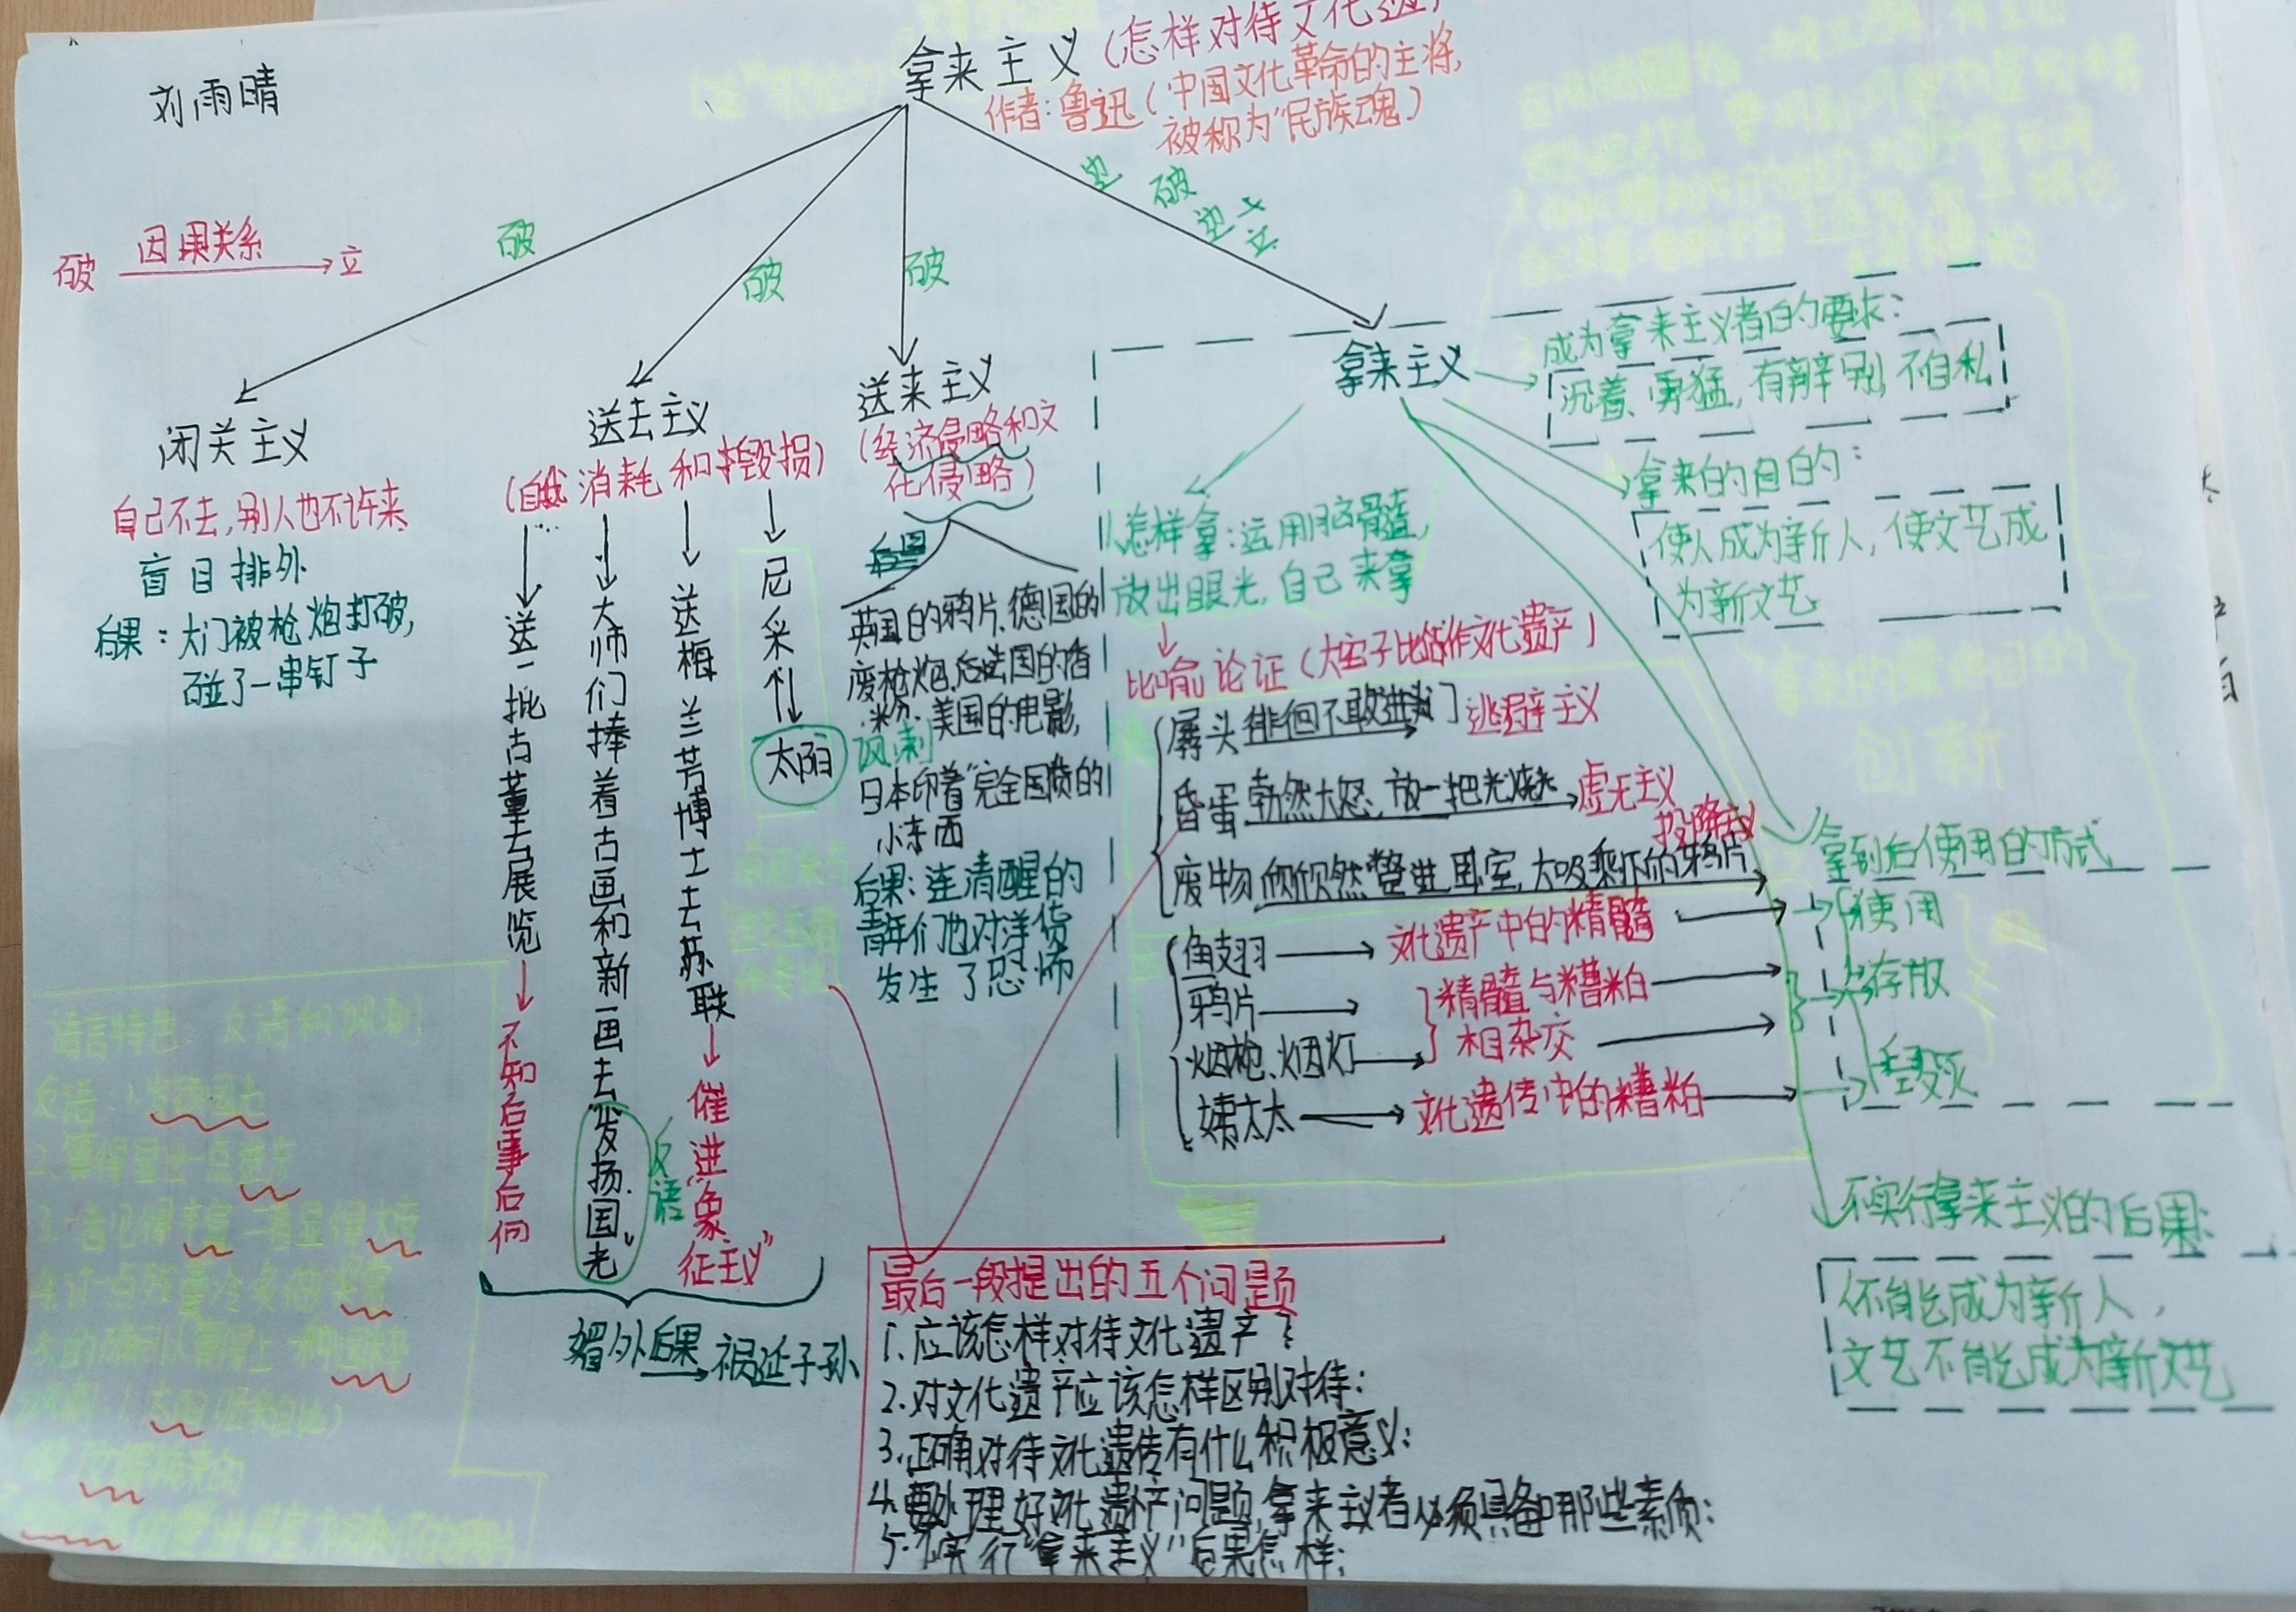 刘雨晴
拿来主义(怎样对待文化遗
作者:鲁迅(中国文化革命的主将,
被称为“民族魂)
破 因果关系 立
破
破
破
边破边立
闭关主义
自己不去,别人也不许来
盲目排外
后果:大门被枪炮打破,
碰了一串钉子
送去主义
(自我消耗和毁损)
送一批古董去展览
不知后事后何
大师们捧着古画和新画去“发扬国光”
反语
送梅兰芳博士去苏联
催进“象征主义”
尼采
太阳
媚外后果 祸延子孙
送来主义
(经济侵略和文
化侵略)
英国的鸦片、德国的
废枪炮,后法国的香
粉、美国的电影,
讽刺
日本印着“完全国货的
小东西
后果:连清醒的
青年们也对洋货
发生了恐怖
拿来主义
怎样拿:运用脑髓,
放出眼光,自己来拿
比喻论证(大宅子比作文化遗产)
孱头 徘徊不敢进门 逃避主义
昏蛋 勃然大怒、放一把火烧光 虚无主义
投降主义
废物 欣欣然蹩进卧室,大吸剩下的鸦片
鱼翅 文化遗产中的精髓
鸦片
精髓与糟粕
烟枪、烟灯 相杂交
姨太太 文化遗传中的糟粕
成为拿来主义者的要求:
沉着、勇猛,有辨别,不自私
拿来的目的:
使人成为新人,使文艺成
为新文艺
拿到后使用的方式
使用
存放
毁灭
不实行拿来主义的后果:
人不能成为新人,
文艺不能成为新文艺
最后一段提出的五个问题
1.应该怎样对待文化遗产?
2.对文化遗产应该怎样区别对待:
3.正确对待文化遗传有什么积极意义:
4.要处理好文化遗产问题,拿来主义者必须具备哪些素质:
5.不实行“拿来主义”后果怎样:
语言特色:反语和讽刺
反语:1.发扬国光
2.算得显出一点进步